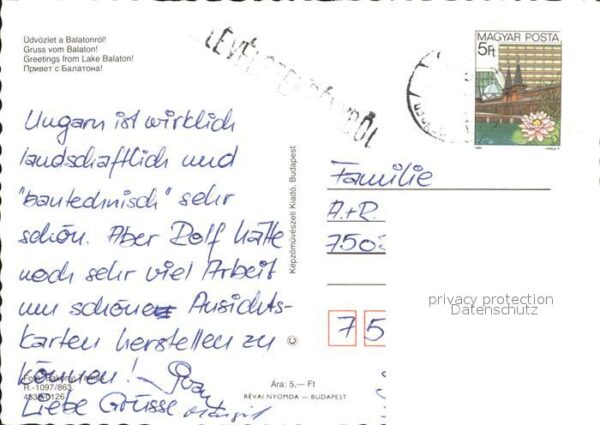 Üdvözlet a Balatonról!
Gruss vom Balaton!
Greetings from Lake Balaton!
Привет с Балатона!
MAGYAR POSTA
5Ft
Ungarn ist wirklich
landschaftlich und
"bautechnisch" sehr
schön. Aber Rolf hätte
noch sehr viel Arbeit
um schöne Ansichts-
karten herstellen zu
können!
Liebe Grüsse
R.-1097/863
Képzőművészeti Kiadó, Budapest
Ára: 5,— Ft
RÉVAI NYOMDA — BUDAPEST
Familie
A.+R.
750
7 5
privacy protection
Datenschutz